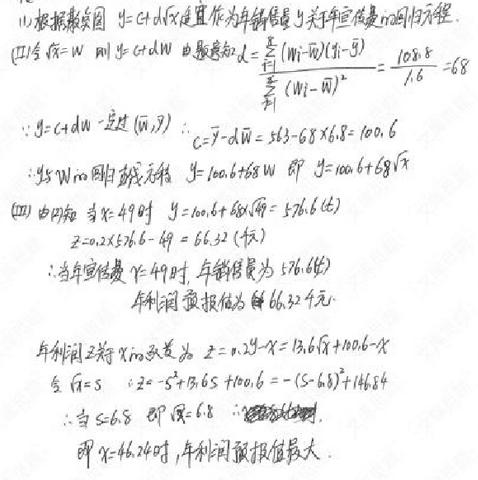 (I) 根据散点图 y=c+d√x 适宜作为年销售量y关于年宣传费x的回归方程.
(II) 令√x=w 则 y=c+dw 由题意知 d = \frac{\sum_{i=1}^{8}(wi-\bar{w})(yi-\bar{y})}{\sum_{i=1}^{8}(wi-\bar{w})^2} = \frac{108.8}{1.6} = 68
∵ y=c+dw 一定过(\bar{w},\bar{y}) ∴ c=\bar{y}-d\bar{w}=563-68×6.8=100.6
∴ y与w的回归直线方程 y=100.6+68w 即 y=100.6+68√x
(III) 由 知 当x=49时 y=100.6+68×√49=576.6(t)
z=0.2×576.6-49=66.32(千元)
∴当年宣传费x=49时, 年销售量为576.6(t)
年利润预报值为 66.32千元.
年利润z关于x的 为 z=0.2y-x=13.6√x+100.6-x
令√x=s ∴z=-s²+13.6s+100.6=-(s-6.8)²+146.84
∴当s=6.8 即√x=6.8 ∴
即x=46.24时, 年利润预报值最大.